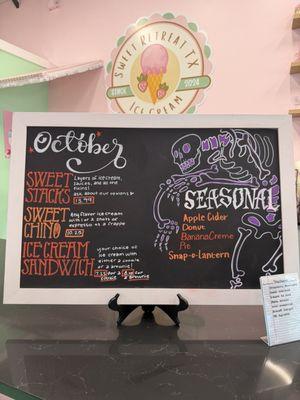 SWEET RETREAT TX
SINCE
2024
ICE CREAM
October
SWEET
STACKS
Layers of ice cream,
sauces, and all the
fixins!
ask about our seasonals!
13.99
SWEET
CHINO
Any flavor ice cream
with 2 shots of
espresso or a frappe
10.25
ICE CREAM
SANDWICH
your choice of
ice cream with
either a cookie or
a brownie!
for a cookie
for a brownie
SEASONAL
Apple Cider
Donut
Banana Creme
Pie
Snap-o-lantern